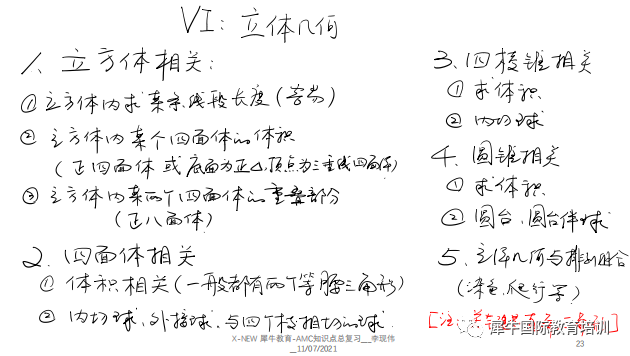 VI: 立体几何
1. 立方体相关:
① 立方体内求某条线段长度(容易)
② 立方体内某个四面体的体积
(正四面体 或 底面为正△,顶点为三垂线四面体)
③ 立方体内某两个四面体的重叠部分
(正八面体)
2. 四面体相关
① 体积相关(一般都有两个等腰三角形)
② 内切球,外接球,与四个棱相切的球.
3. 四棱锥相关
① 求体积
② 内切球
4. 圆锥相关
① 求体积
② 圆台,圆台伴球
5. 立体几何与排列组合
(染色,爬行等)
[注:
犀牛国际教育培训
X-NEW 犀牛教育-AMC知识点总复习__李现伟
__11/07/2021
23